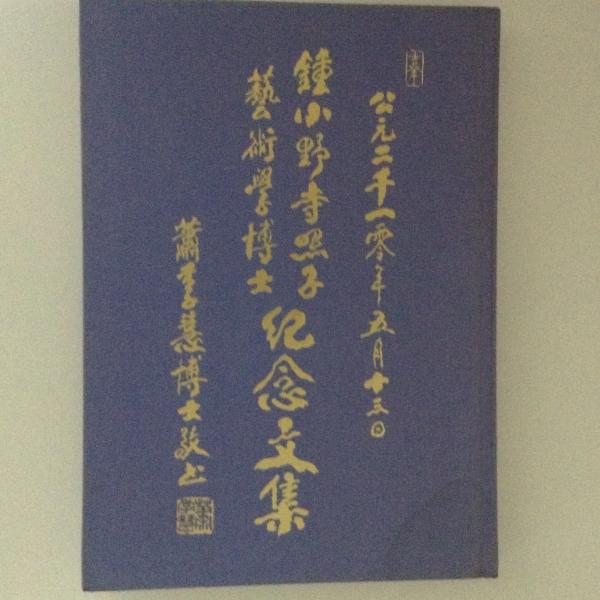 公元二千一零年五月十三日
鍾小野寺照子
藝術學博士
紀念文集
蕭李慧博士敬書